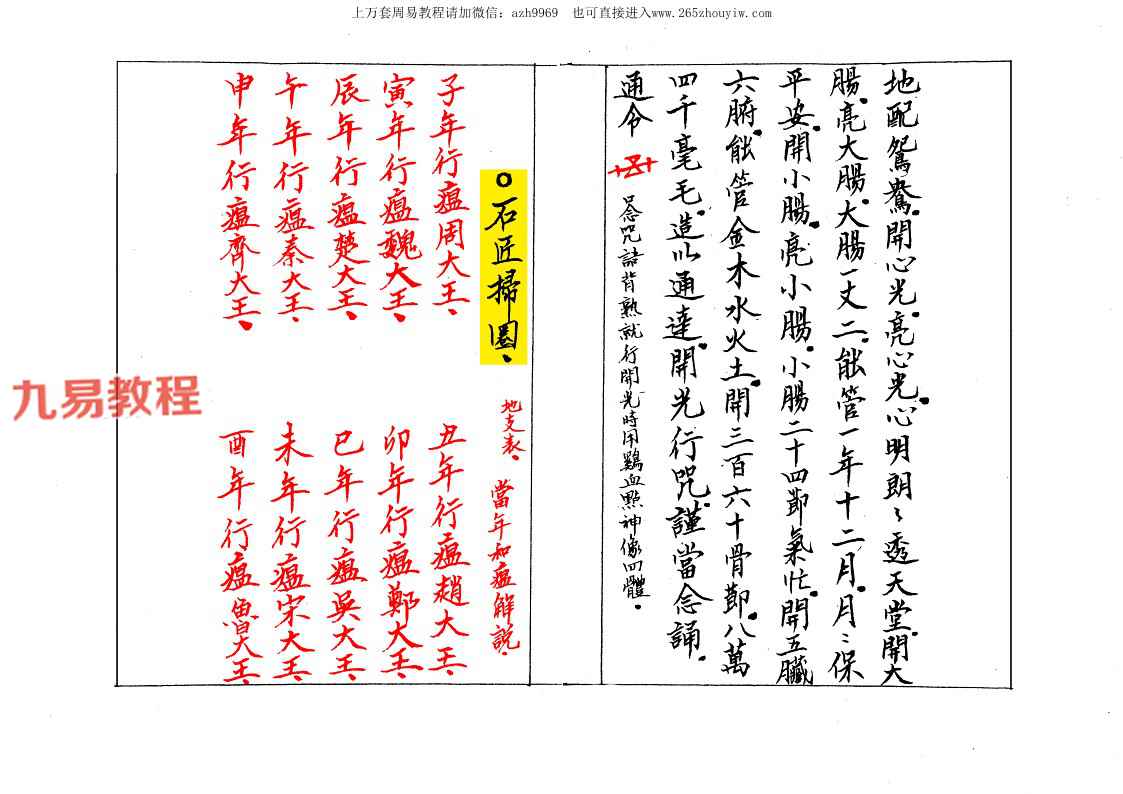 上万套周易教程请加微信：azh9969 也可直接进入www.265zhouyiw.com
地配鴛鴦。開心光。亮心光。心明朗〻透天堂。開大
腸。亮大腸。大腸一丈二。能管一年十二月。月〻保
平安。開小腸。亮小腸。小腸二十四節氣忙。開五臟
六腑。能管金木水火土。開三百六十骨節。八萬
四千毫毛。造以通達。開光行咒。謹當念誦。
通令
念咒語背熟就行開光時用鷄血點神像四體。
○石匠掃圈、
地支表、當年和瘟解說、
子年行瘟周大王、丑年行瘟趙大王、
寅年行瘟魏大王、卯年行瘟鄭大王、
辰年行瘟楚大王、巳年行瘟吳大王、
午年行瘟秦大王、未年行瘟宋大王、
申年行瘟齊大王、酉年行瘟魯大王、
九易教程